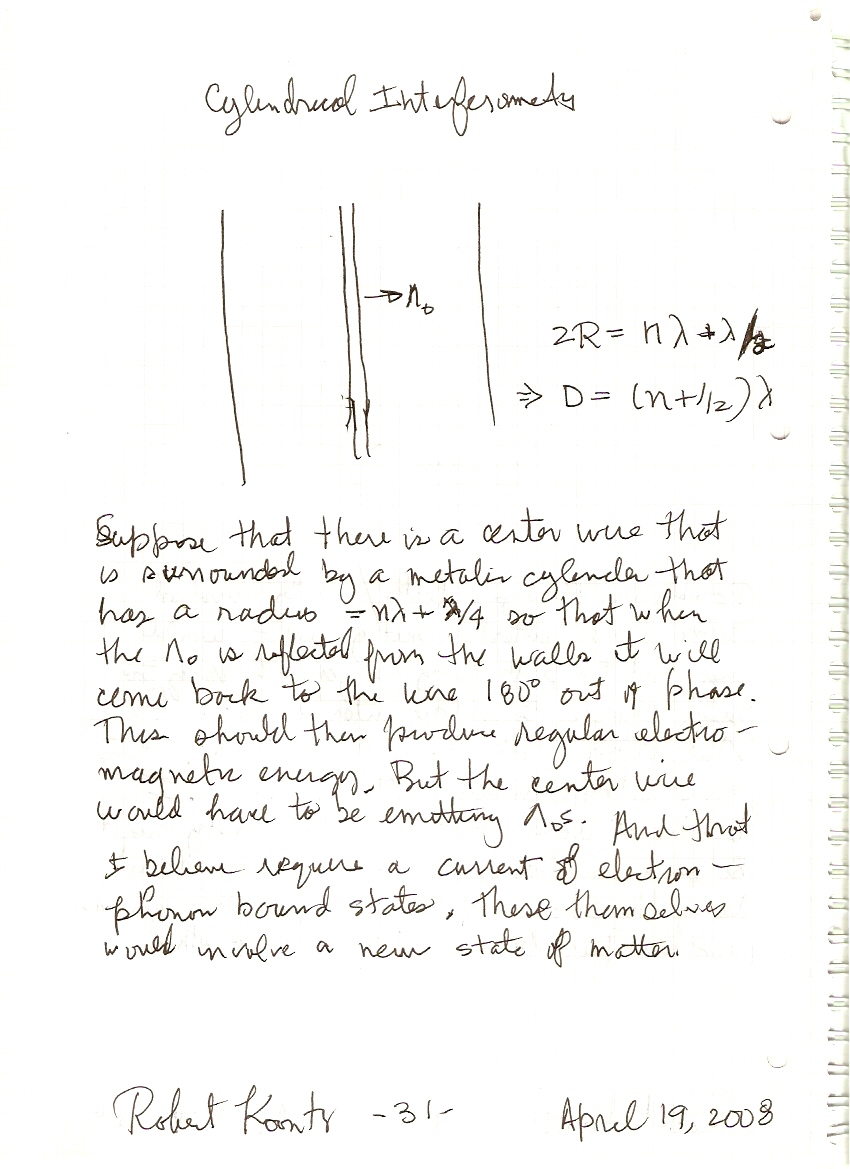 Cylindrical Interferometry
→ Λ₀
2R = nλ + λ/2
⇒ D = (n+1/2)λ
Suppose that there is a center wire that
is surrounded by a metalic cylinder that
has a radius = nλ + λ/4 so that when
the Λ₀ is reflected from the walls it will
come back to the wire 180° out of phase.
This should then produce regular electro-
magnetic energy. But the center wire
would have to be emitting Λ₀s. And that
I believe require a current of electron-
phonon bound states. These themselves
would involve a new state of matter.
Robert Koontz -31- April 19, 2008